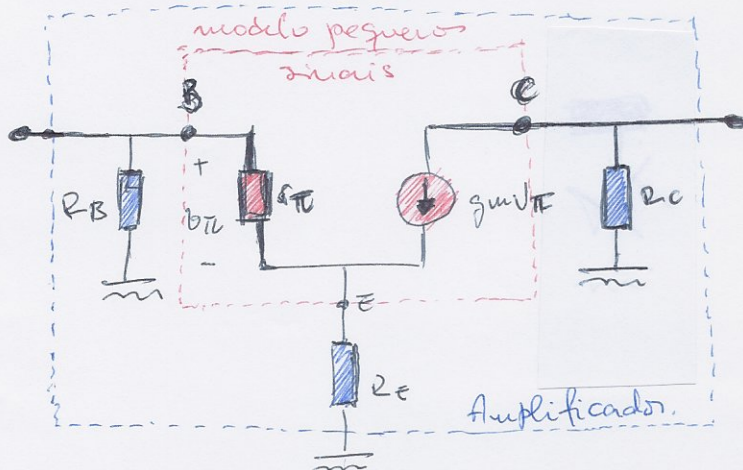 modelo pequenos
sinais
B
C
+
RB
vπ
rπ
gmvπ
RC
-
E
RE
Amplificador.